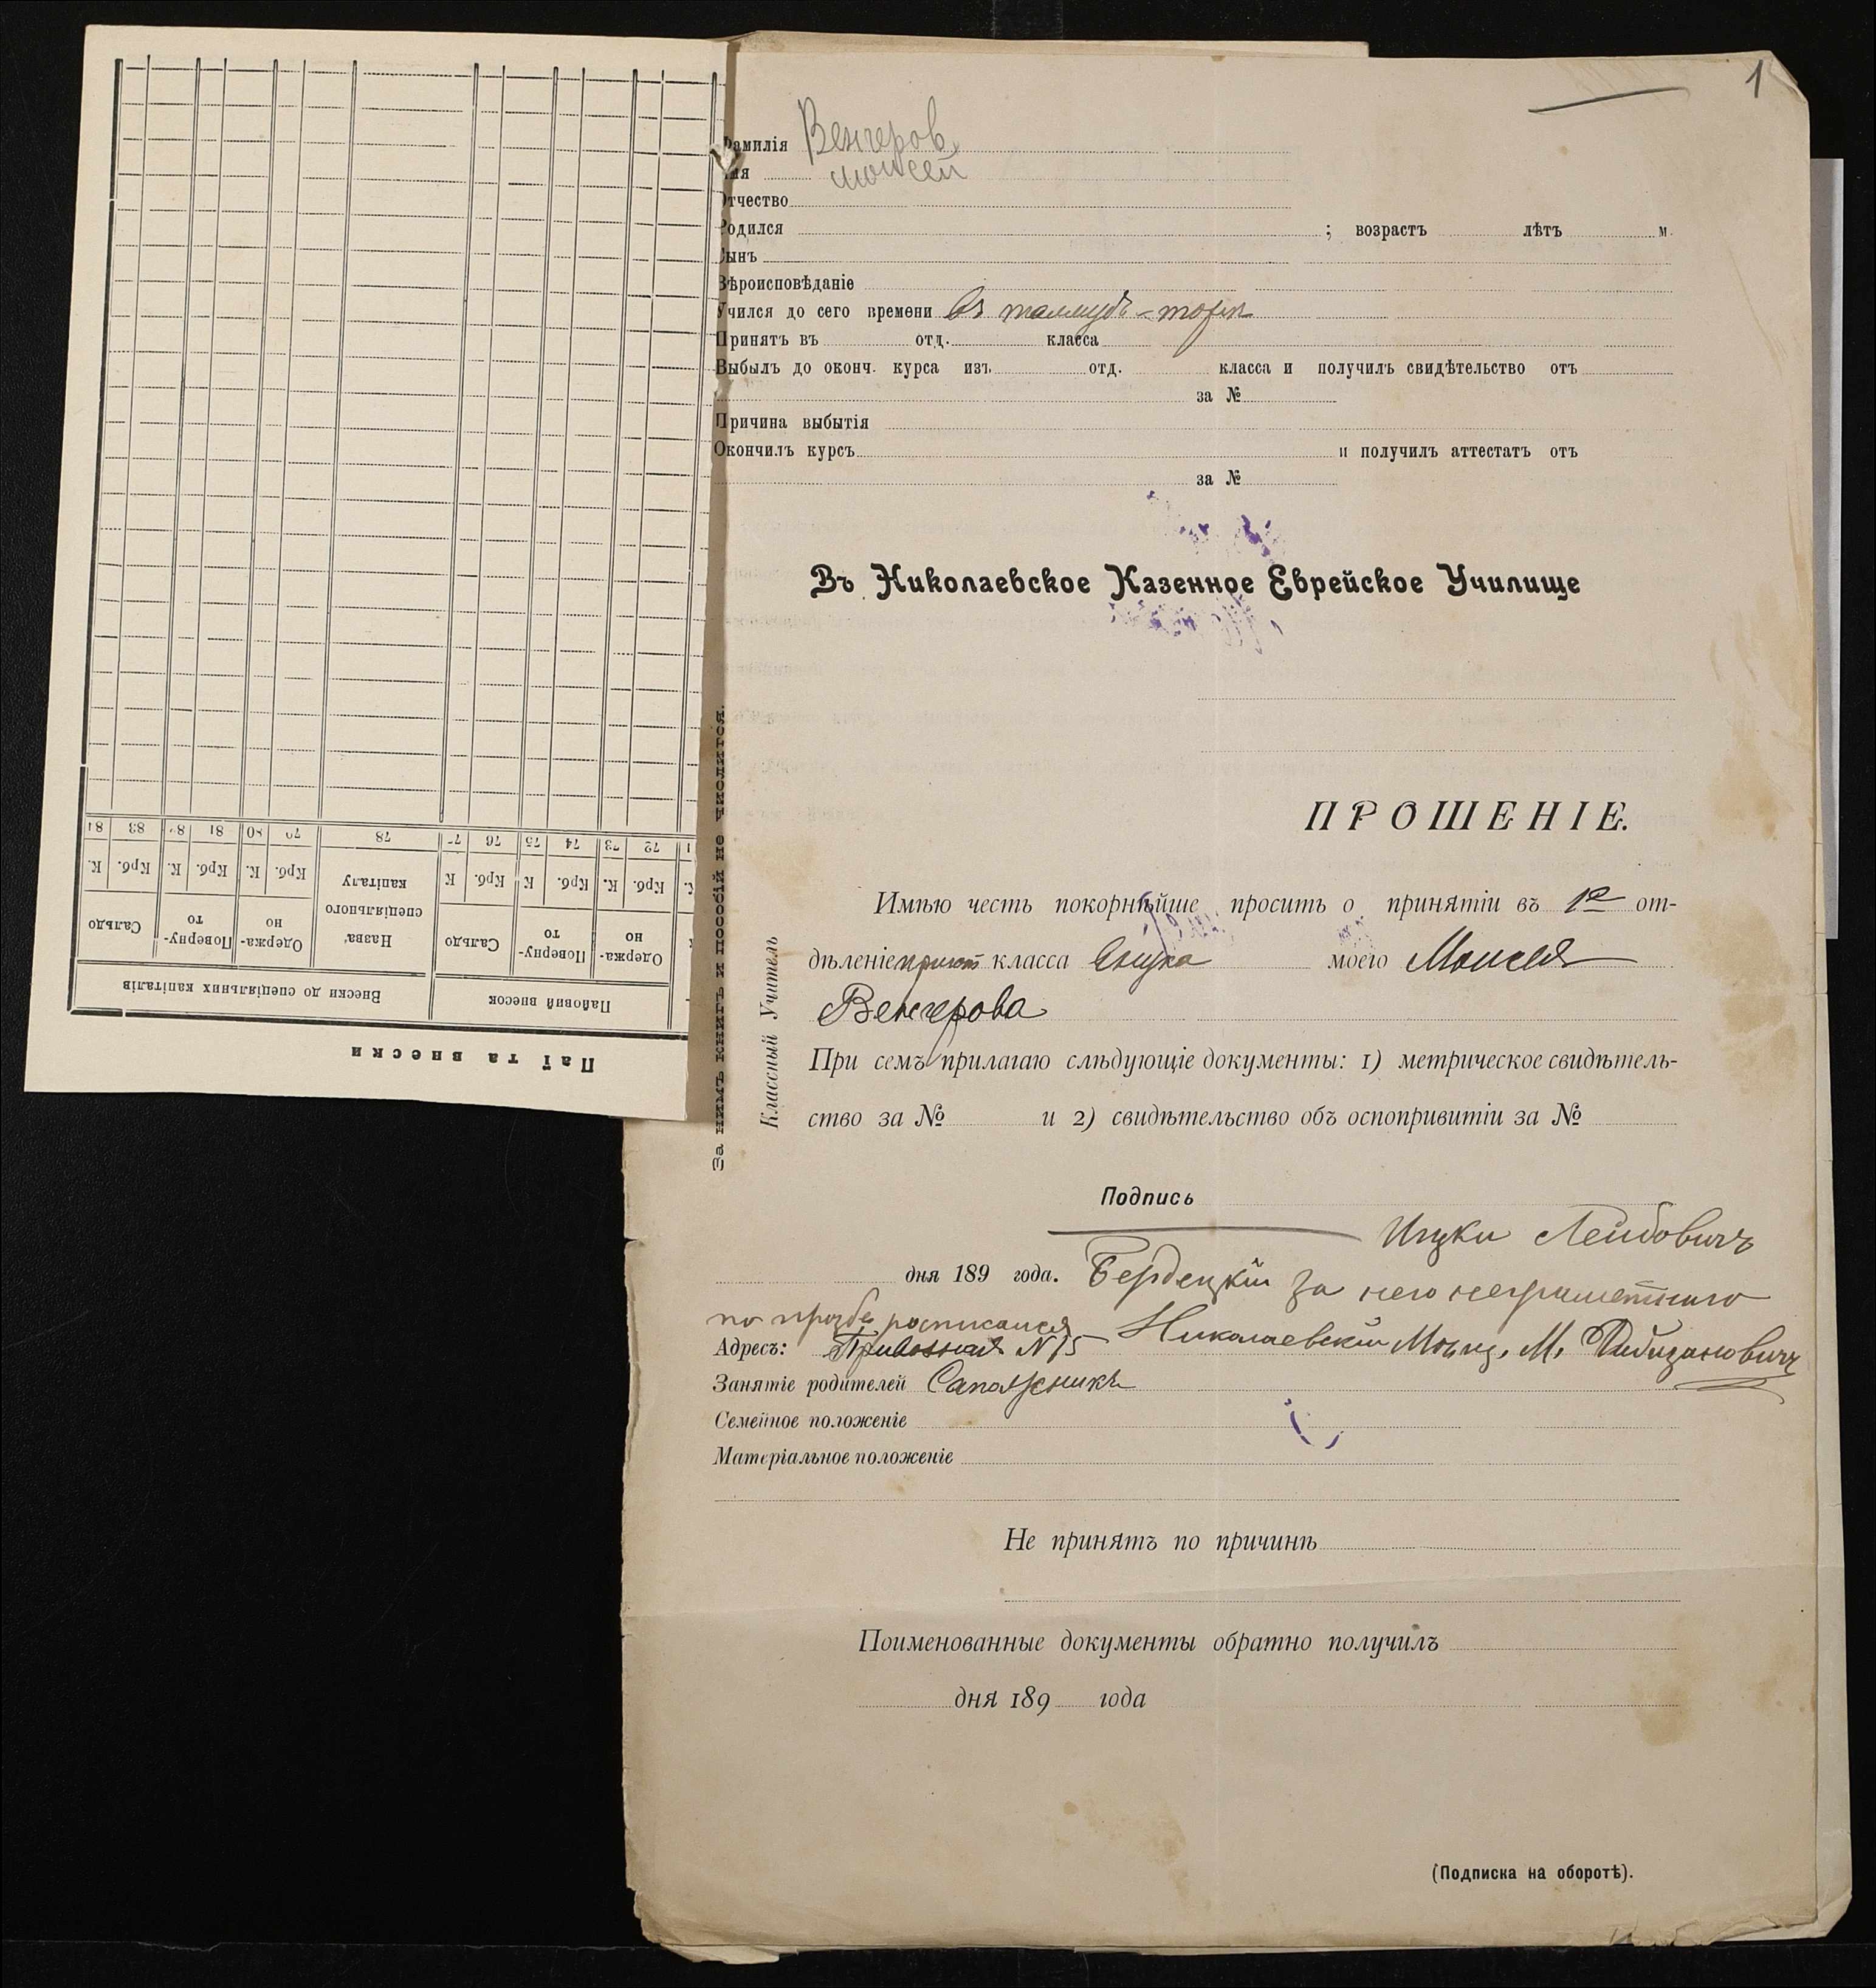 1
Фамилія Венгеров
Имя Моисей
Отчество
Родился ; возрастъ лѣтъ м.
Сынъ
Вѣроисповѣданіе
Учился до сего времени въ талмудъ-торѣ
Принятъ въ отд. класса
Выбылъ до оконч. курса изъ отд. класса и получилъ свидѣтельство отъ
за №
Причина выбытія
Окончилъ курсъ и получилъ аттестатъ отъ
за №
Въ Николаевское Казенное Еврейское Училище
ПРОШЕНІЕ.
Имѣю честь покорнѣйше просить о принятіи въ 1е от-
дѣленіе пригот класса внука моего Моисея
Венгерова
При семъ прилагаю слѣдующіе документы: 1) метрическое свидѣтель-
ство за № и 2) свидѣтельство объ оспопривитіи за №
Подпись
Ицки Лейбовичъ
дня 189 года. Бердецкій за него неграмотнаго
по прозбе росписался Николаевскій М.
Адресъ: Привозная N 75
Занятіе родителей Сапожникъ
Семейное положеніе
Матеріальное положеніе
Не принятъ по причинѣ
Поименованные документы обратно получилъ
дня 189 года
(Подписка на оборотѣ).
Классный Учитель
За нимъ книгъ и пособій не числится.
Паї та внески
Пайовий внесок
Внески до спеціальних капіталів
Одержа-но
Поверну-то
Сальдо
Назва спеціяльного капіталу
Одержа-но
Поверну-то
Сальдо
Крб. К. Крб. К Крб. К Крб. К. Крб. К. Крб. К.
72 73 74 75 76 77 78 79 80 81 82 83 84